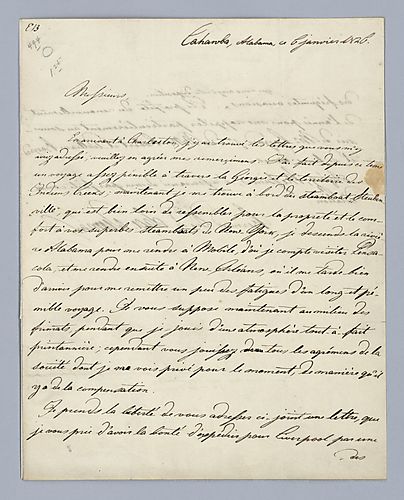 Cahawba, Alabama ce 6 janvier 1826.
Messieurs
En arrivant à Charleston, j'y ai trouvé les lettres que vous m'avez
adressé, veuillez en agréer mes remerciments. J'ai fait depuis ce tems
un voyage assez penible à travers la Georgie et le territoire des
Indiens Creeks; maintenant je me trouve à bord du steamboat Steuben
ville, qui est bien loin de ressembler pour la propreté et le com
fort à vos superbes Steamboats de New York, je descends la riviè
re Alabama pour me rendre à Mobile, d'où je compte visiter Pensa
cola, et me rendre ensuite à New Orleans, où il me tarde bien
d'arriver pour me remettre un peu des fatigues d'un long et pé
nible voyage. Je vous suppose maintenant au milieu des
frimats, pendant que je jouis d'une atmosphère tout à fait
printannière; cependant vous jouissez de tous les agrémens de la
société dont je me vois privé pour le moment, de manière qu'il
y a de la compensation.
Je prends la liberté de vous adresser ci-joint une lettre, que
je vous prie d'avoir la bonté d'expédier pour Liverpool par une
des